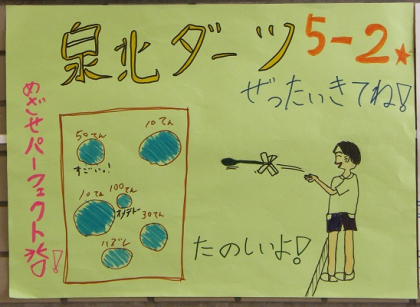 泉北ダーツ
5-2
ぜったいきてね!
めざせパーフェクト
50てん
すごいっ!
10てん
100てん
10てん
30てん
ハズレ
たのしいよ!